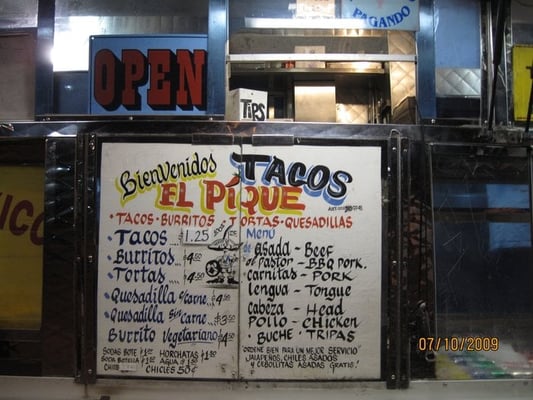 PAGANDO
OPEN
TIPS
BienVenidos TACOS
EL PíQUE
• TACOS • BURRITOS • TORTAS • QUESADILLAS
• Tacos 1.25
• Burritos
• Tortas
• Quesadilla
• Quesadilla Sin carne
Burrito Vegetariano
SODAS BOTE $1.00
SODA BOTELLA
HORCHATAS
AGUA
CHICLES 50¢
Menú
de Asada - Beef
al Pastor - BBQ PORK.
Carnitas - PORK
Lengua - Tongue
Cabeza - Head
POLLO - CHICKEN
BUCHE - TRIPAS
ORDENE BIEN PARA UN MEJOR SERVICIO
JALAPEÑOS, CHILES ASADOS
y CEBOLLITAS ASADAS GRATIS!
07/10/2009